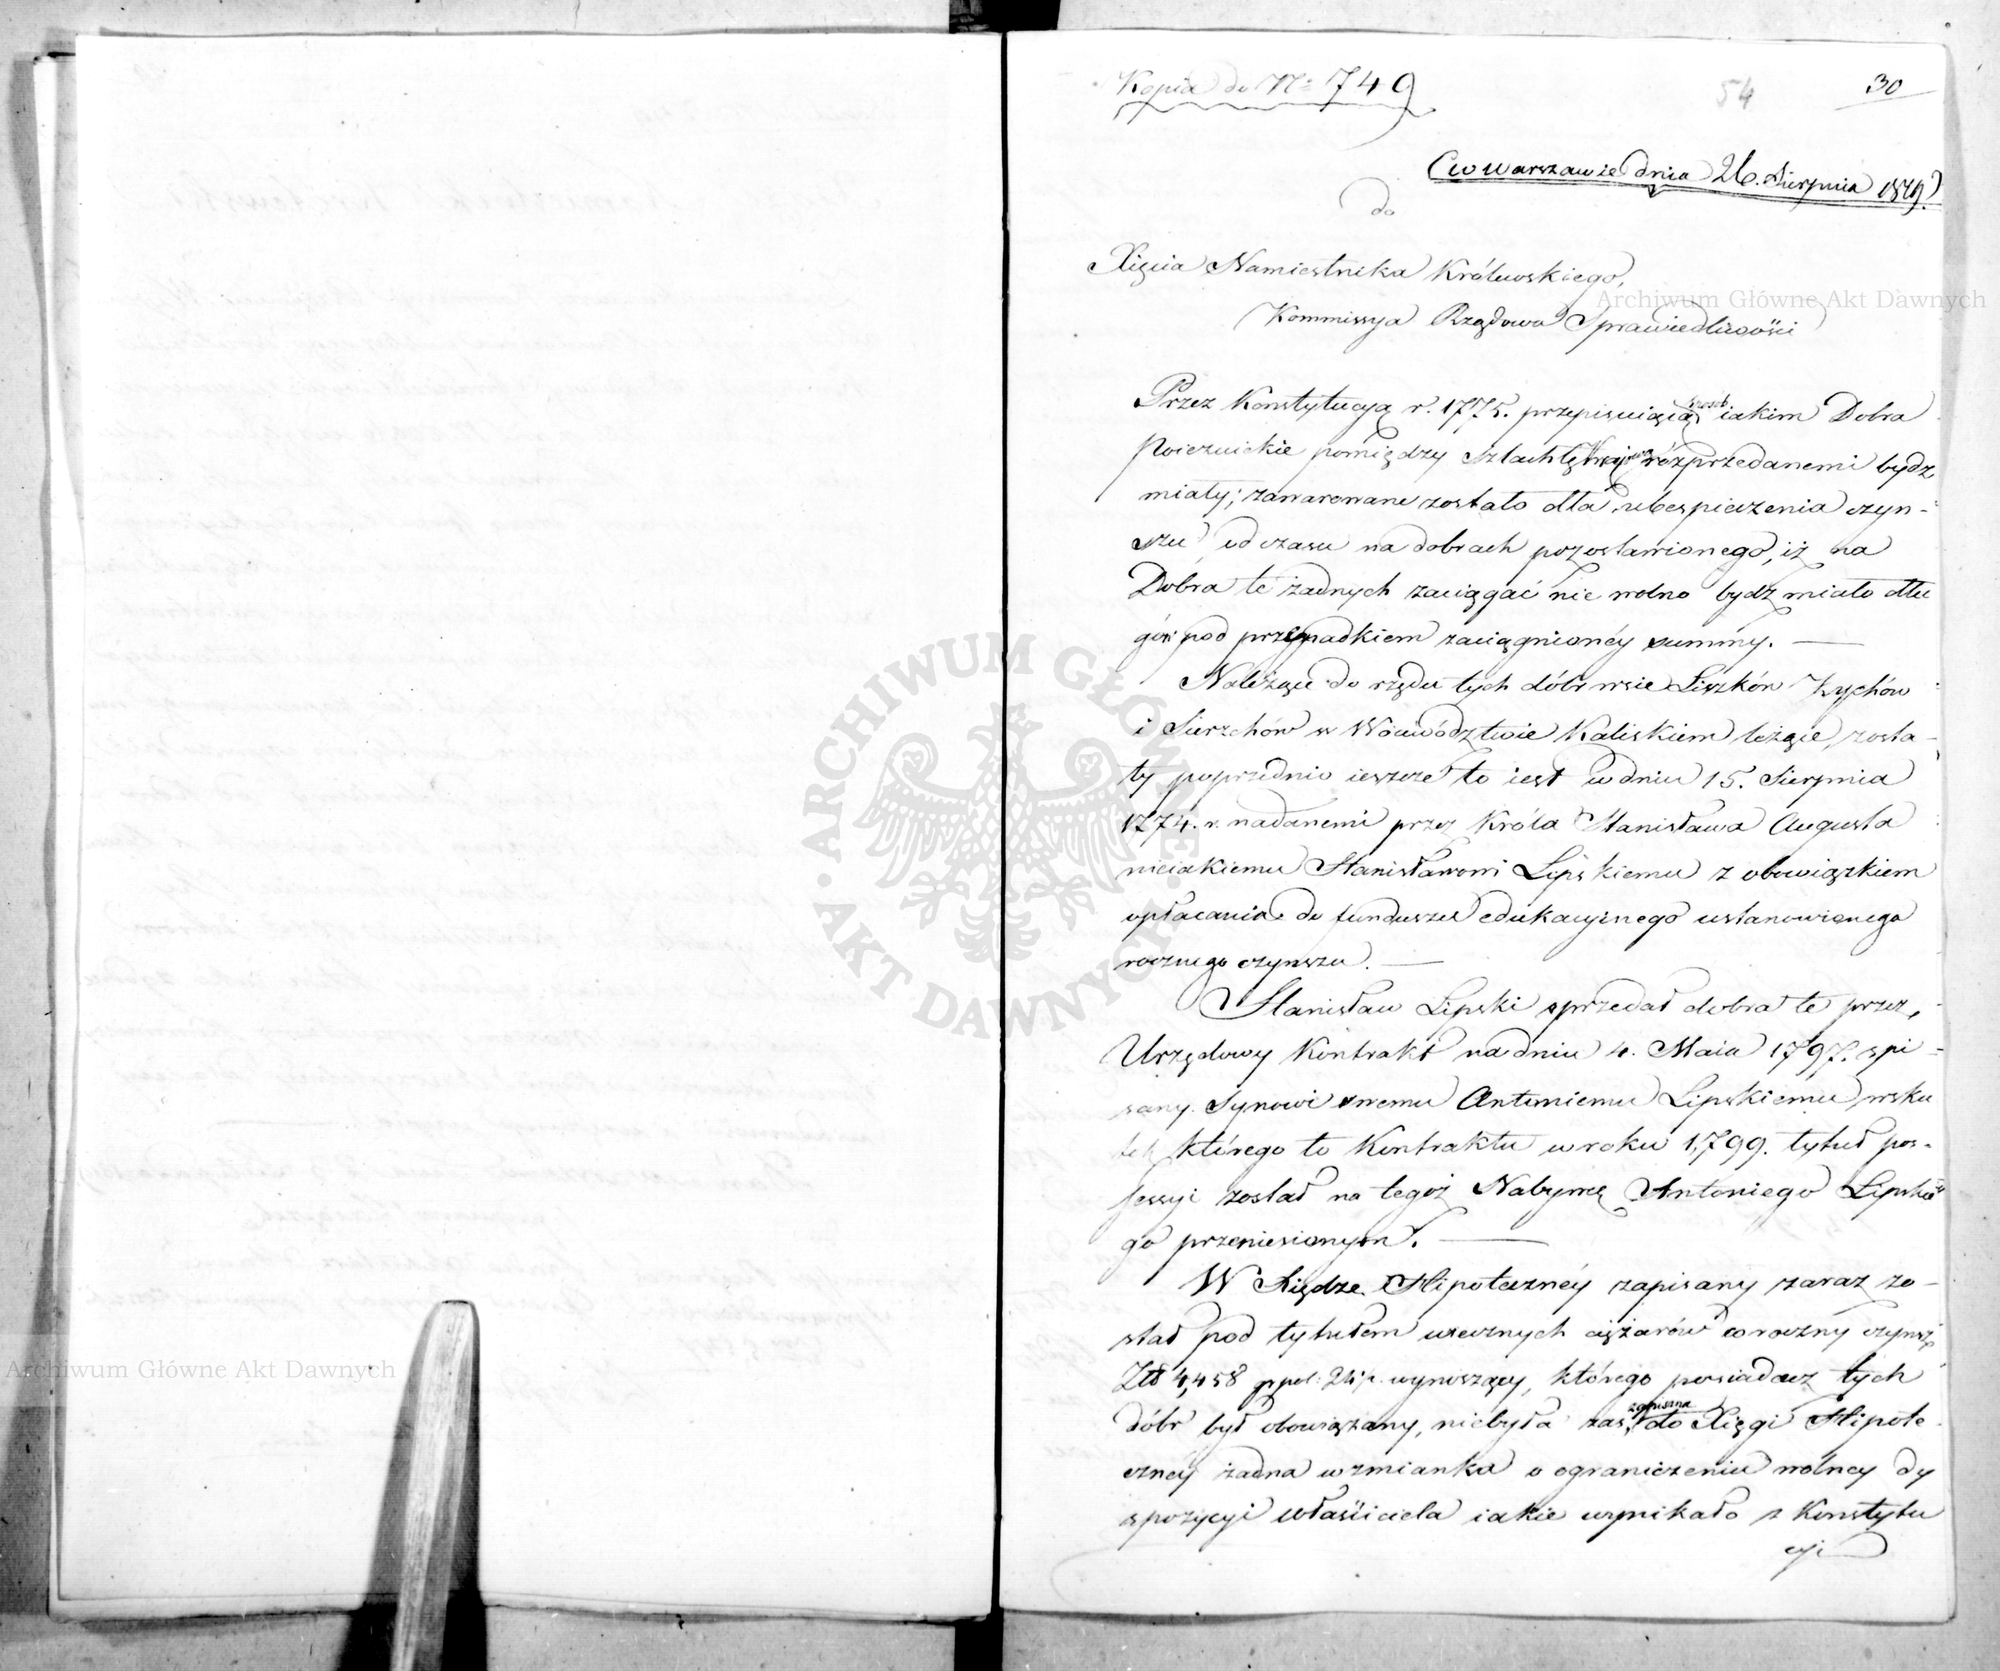 Kopia do Nº 749
54
30
w Warszawie dnia 26. Sierpnia 1819.
do
Xięcia Namiestnika Królewskiego,
Kommissya Rządowa Sprawiedliwości
Przez Konstytucyą r. 1775. przepisuiącą sposób iakim Dobra
Poiezuickie pomiędzy Szlachtę rozprzedanemi bydz
miały; zawarowane zostało dla ubespieczenia czyn-
szu, od czasu na dobrach pozostawionego, iż na
Dobra te żadnych zaciągać nie wolno bydz miało dłu
gów pod przepadkiem zaciągnionéy summy. —
Należące do rzędu tych dóbr wsie Liszków Zychów
i Sierzchów w Woiewództwie Kaliskiem leżące, zosta-
ły poprzednio ieszcze to iest w dniu 15. Sierpnia
1774. r. nadanemi przez Króla Stanisława Augusta
nieiakiemu Stanisławowi Lipskiemu z obowiązkiem
opłacania do funduszu edukacyinego ustanowionego
rocznego czynszu. —
Stanisław Lipski sprzedał dobra te przez
Urzędowy Kontrakt na dniu 4. Maia 1797. spi-
sany Synowi swemu Antoniemu Lipskiemu, wsku
tek którego to Kontraktu w roku 1799. tytuł pos-
sessyi został na tegoż Nabywcę Antoniego Lipskie
go przeniesionym. —
W Xiędze Hipoteczney zapisany zaraz zo-
stał pod tytułem wiecznych ciężarów coroczny czynsz
Złł 4,458 gr pol: wynoszący, którego posiadacz tych
dóbr był obowiązany, niebyła zaś zapisana do Xięgi Hipote
czney żadna wzmianka o ograniczeniu wolney dy
spozycyi właściciela iakie wynikało z Konstytu
cyi
Archiwum Główne Akt Dawnych
Archiwum Główne Akt Dawnych
ARCHIWUM GŁÓWNE · AKT DAWNYCH ·